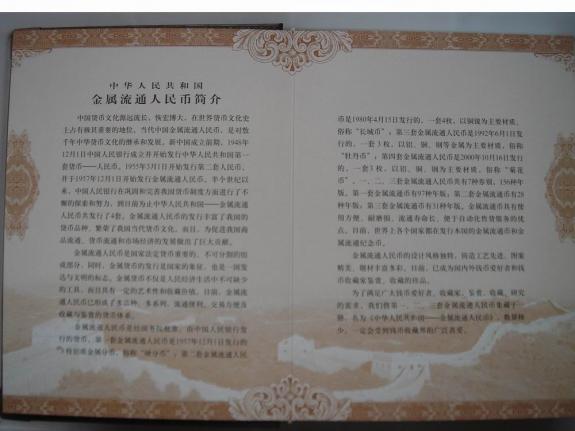 中华人民共和国
金属流通人民币简介
中国货币文化源远流长，恢宏博大，在世界货币文化史
上占有极其重要的地位。当代中国金属流通人民币，是对数
千年中华货币文化的继承和发展。新中国成立前期，1948年
12月1日中国人民银行成立并开始发行中华人民共和国第一
套货币——人民币。1955年3月1日开始发行第二套人民币，
并于1957年12月1日开始发行金属流通人民币。半个世纪以
来，中国人民银行在巩固和完善我国货币制度方面进行了不
懈的探索和努力，到目前为止中华人民共和国——金属流通
人民币共发行了4套。金属流通人民币的发行丰富了我国的
货币品种，繁荣了我国当代货币文化。而且，为促进我国商
品流通、货币流通和市场经济的发展做出了巨大贡献。
金属流通人民币是国家法定货币重要的、不可分割的组
成部分，同时，金属货币的发行是国家的象征，也是一国发
达与文明的标志。金属货币不仅是人民经济生活中不可缺少
的工具，而且具有一定的艺术性和收藏价值。目前，金属流
通人民币已形成了多品种、多系列、流通便利、交易方便及
收藏与鉴赏的货币体系。
金属流通人民币是经国务院批准，由中国人民银行发
行的货币。第一套金属流通人民币是1957年12月1日发行的
币是1980年4月15日发行的，一套4枚，以铜镍为主要材质，
俗称“长城币”；第三套金属流通人民币是1992年6月1日发
行的，一套3枚，以铝、铜、钢等金属为主要材质，俗称
“牡丹币”；第四套金属流通人民币是2000年10月16日发行
的，一套3枚，以铝、铜、钢为主要材质，俗称“菊花
币”。一、二、三套金属流通人民币共有7种券别，156种年
版。第一套金属流通币有97种年版；第二套金属流通币有28
种年版；第三套金属流通币有31种年版。金属流通币具有使
用方便、耐磨损、流通寿命长、便于自动化售货服务的优
点。目前，世界上各个国家都在发行本国的金属流通币和金
属流通纪念币。
金属流通人民币的设计风格独特，铸造工艺先进，图案
精美，题材丰富多彩。目前，已成为国内外钱币爱好者和钱
币收藏家鉴赏、收藏的珍品。
为了满足广大钱币爱好者、收藏家、鉴赏、收藏、研究
的需求，我们将一、二、三套金属流通人民币集藏于一
册，名为《中华人民共和国——金属流通人民币》，数量稀
少，一定会受到钱币收藏界的广泛喜爱。